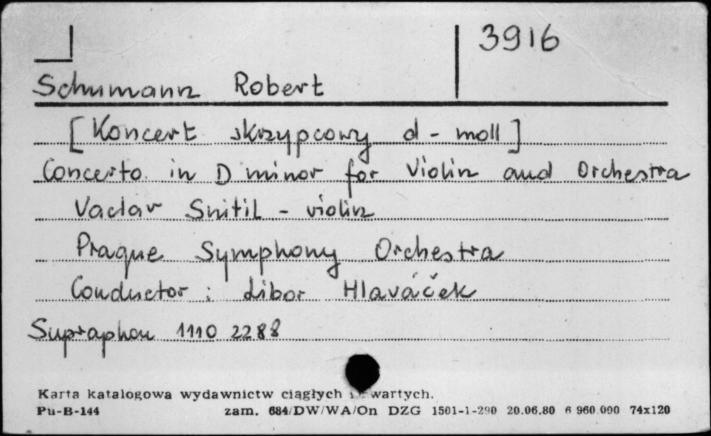 3916
Schumann Robert
[Koncert skrzypcowy d-moll]
Concerto in D minor for Violin and Orchestra
Vaclav Snitil - violin
Prague Symphony Orchestra
Conductor: Libor Hlaváček
Supraphon 1110 2288
Karta katalogowa wydawnictw ciągłych i zwartych.
Pu-B-144 zam. 684/DW/WA/On DZG 1501-1-290 20.06.80 6 960.000 74x120